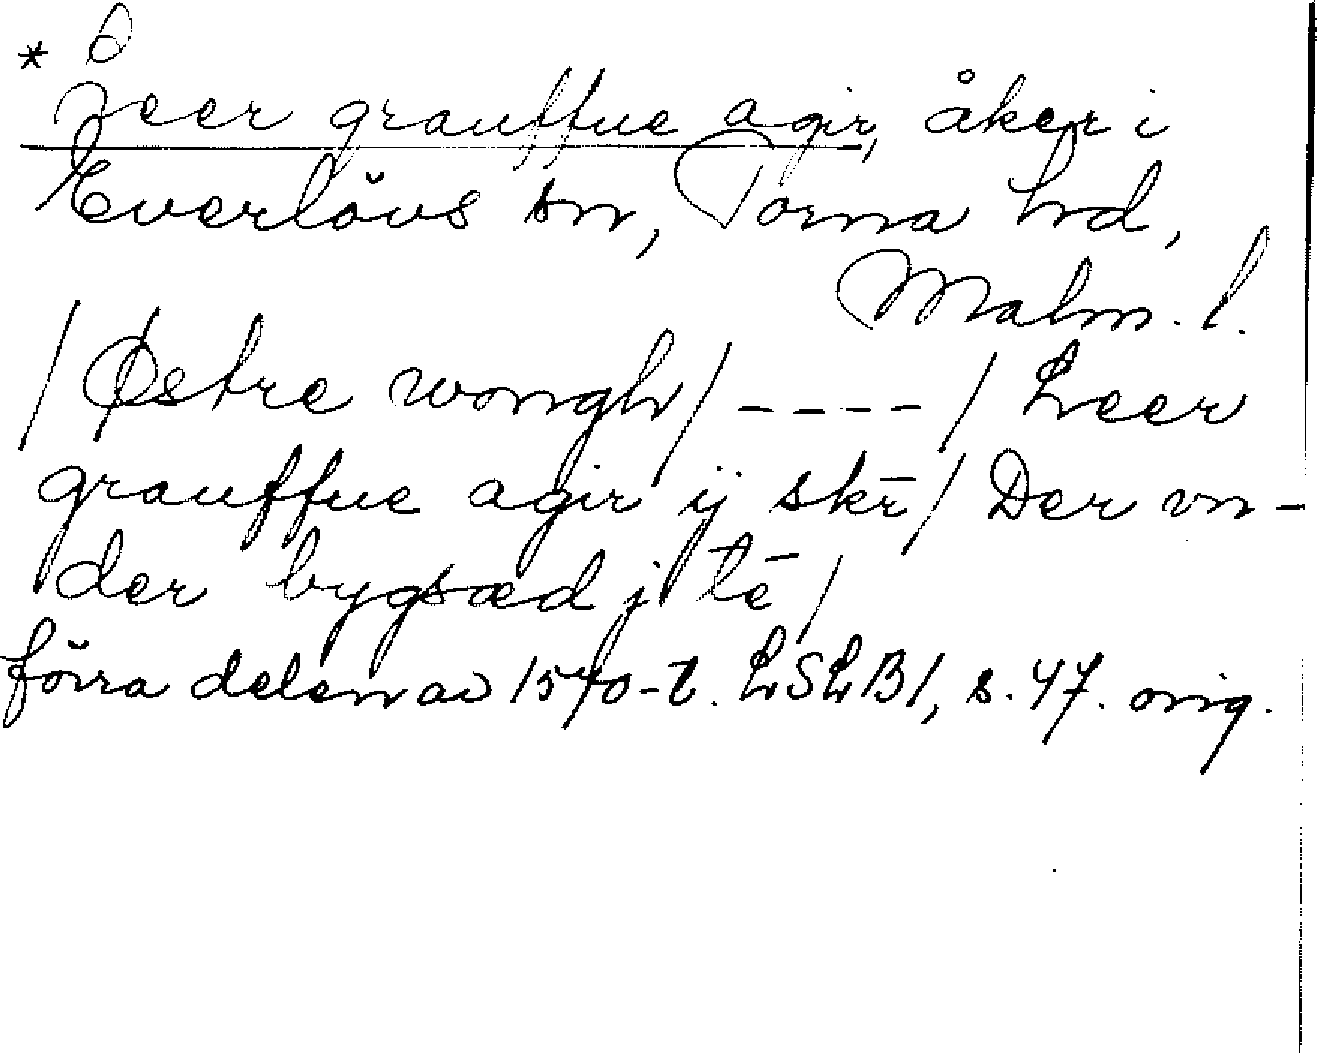 * Leer grauffue agir, åker i
Everlövs sn, Torna hd,
Malm. l.
/ Østre wongh / ---- / Leer
grauffue agir ij skr̄ / Der vn-
der bygsæd j tē /
förra delen av 1570-t. LSLB1, s. 47. orig.